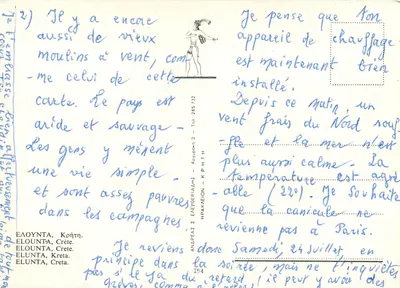 2) Il y a encore
aussi de vieux
moulins à vent, com-
me celui de cette
carte. Le pays est
aride et sauvage -
Les gens y mènent
une vie simple -
et sont assez pauvres
dans les campagnes.
ΕΛΟΥΝΤΑ, Κρήτη.
ELOUNTA, Crète.
ELOUNDA, Crete.
ELUNTA, Kreta.
ELUNTA, Creta.
ΗΡΑΚΛΕΙΟΝ - ΚΡΗΤΗ
154
Je pense que ton
appareil de chauffage
est maintenant bien
installé.
Depuis ce matin, un
vent frais du Nord souf-
fle et la mer n'est
plus aussi calme. La
température est agré-
able (22°). Je souhaite
que la canicule ne
revienne pas à Paris.
Je reviens donc Samedi, 24 Juillet en
principe dans la soirée, mais ne t'inquiètes
pas s'il y a du retard, il peut y avoir des
grèves, comme
Je t'embrasse bien affectueusement